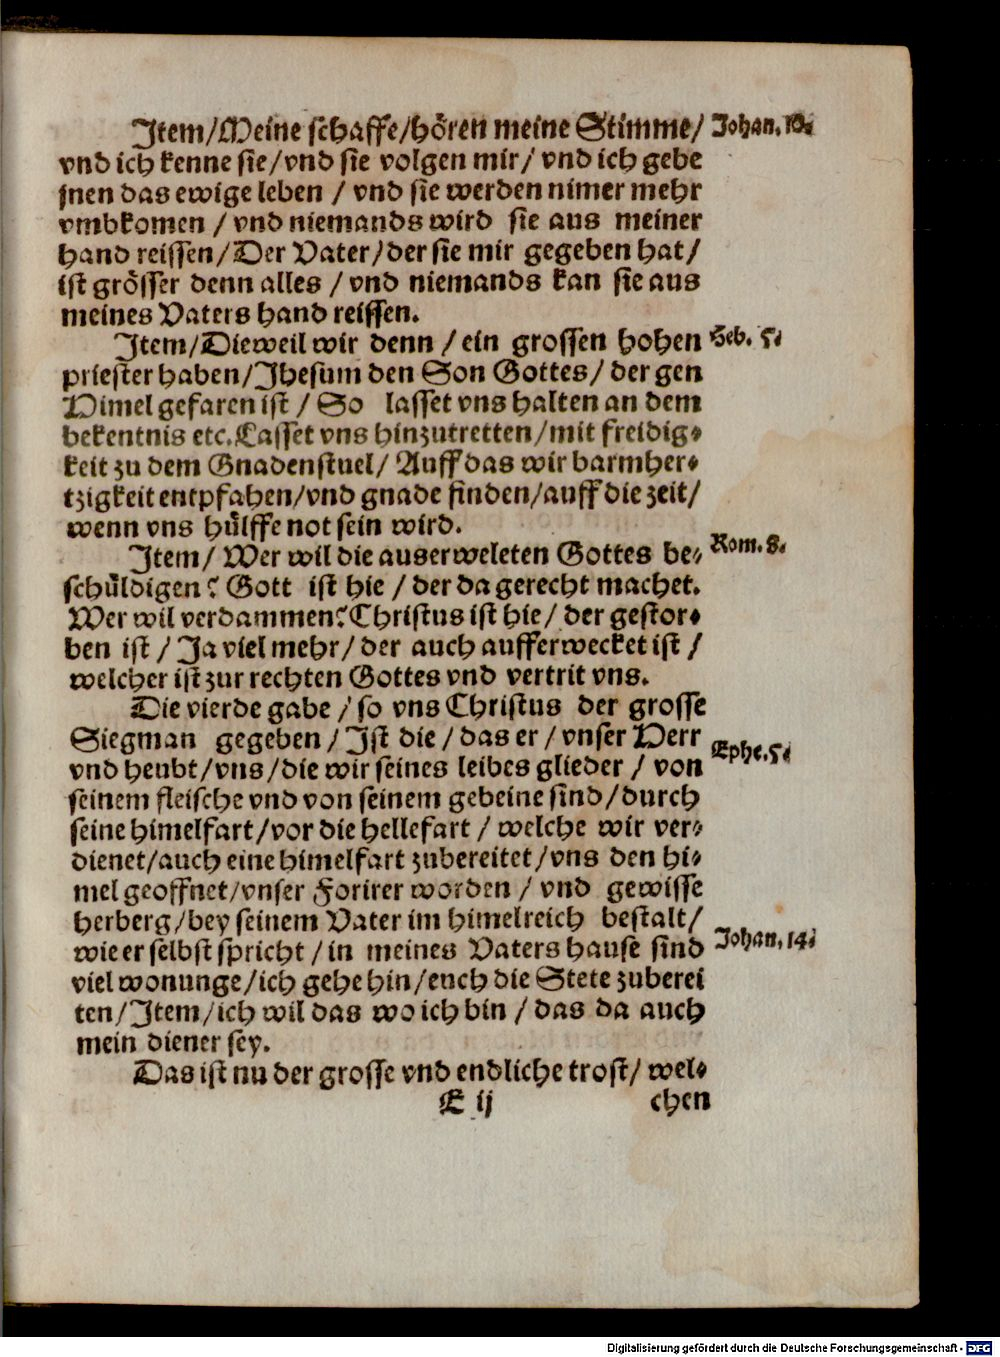 Item/Meine schaffe/hören meine Stimme/ Johan. 10.
vnd ich kenne sie/vnd sie volgen mir/ vnd ich gebe
jnen das ewige leben / vnd sie werden nimer mehr
vmbkomen / vnd niemands wird sie aus meiner
hand reissen/Der Vater/der sie mir gegeben hat/
ist grösser denn alles / vnd niemands kan sie aus
meines Vaters hand reissen.
Item/Dieweil wir denn / ein grossen hohen Heb. 5.
priester haben/Jhesum den Son Gottes/ der gen
Himel gefaren ist / So lasset vns halten an dem
bekentnis etc. Lasset vns hinzutretten/mit freidig-
keit zu dem Gnadenstuel/ Auff das wir barmher-
tzigkeit entpfahen/vnd gnade finden/auff die zeit/
wenn vns hülffe not sein wird.
Item/ Wer wil die auserweleten Gottes be- Rom. 8.
schüldigen? Gott ist hie / der da gerecht machet.
Wer wil verdammen? Christus ist hie/ der gestor-
ben ist / Ja viel mehr/ der auch aufferwecket ist /
welcher ist zur rechten Gottes vnd vertrit vns.
Die vierde gabe / so vns Christus der grosse
Siegman gegeben / Ist die / das er / vnser Herr
vnd heubt/vns/die wir seines leibes glieder / von Ephe. 5.
seinem fleische vnd von seinem gebeine sind/durch
seine himelfart/vor die hellefart / welche wir ver-
dienet/auch eine himelfart zubereitet/vns den hi-
mel geoffnet/vnser Forirer worden / vnd gewisse
herberg/bey seinem Vater im himelreich bestalt/
wie er selbst spricht / in meines Vaters hause sind Johan. 14.
viel wonunge/ich gehe hin/euch die Stete zuberei
ten/Item/ich wil das wo ich bin / das da auch
mein diener sey.
Das ist nu der grosse vnd endliche trost/ wel-
E ij chen
Digitalisierung gefördert durch die Deutsche Forschungsgemeinschaft - DFG